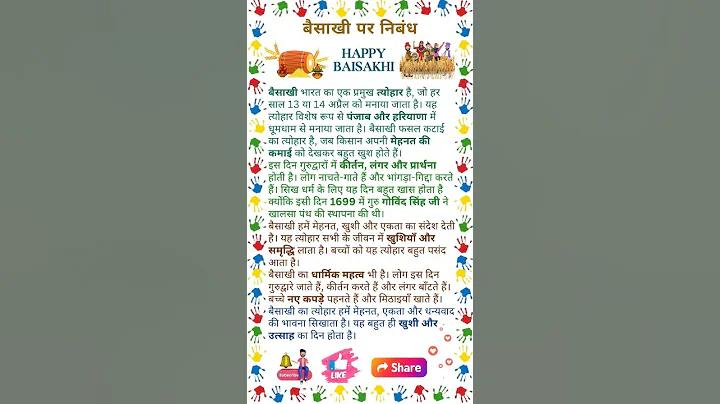 बैसाखी पर निबंध
HAPPY
BAISAKHI
बैसाखी भारत का एक प्रमुख त्योहार है, जो हर
साल 13 या 14 अप्रैल को मनाया जाता है। यह
त्योहार विशेष रूप से पंजाब और हरियाणा में
धूमधाम से मनाया जाता है। बैसाखी फसल कटाई
का त्योहार है, जब किसान अपनी मेहनत की
कमाई को देखकर बहुत खुश होते हैं।
इस दिन गुरुद्वारों में कीर्तन, लंगर और प्रार्थना
होती है। लोग नाचते-गाते हैं और भांगड़ा-गिद्दा करते
हैं। सिख धर्म के लिए यह दिन बहुत खास होता है
क्योंकि इसी दिन 1699 में गुरु गोविंद सिंह जी ने
खालसा पंथ की स्थापना की थी।
बैसाखी हमें मेहनत, खुशी और एकता का संदेश देती
है। यह त्योहार सभी के जीवन में खुशियाँ और
समृद्धि लाता है। बच्चों को यह त्योहार बहुत पसंद
आता है।
बैसाखी का धार्मिक महत्व भी है। लोग इस दिन
गुरुद्वारे जाते हैं, कीर्तन करते हैं और लंगर बाँटते हैं।
बच्चे नए कपड़े पहनते हैं और मिठाइयाँ खाते हैं।
बैसाखी का त्योहार हमें मेहनत, एकता और धन्यवाद
की भावना सिखाता है। यह बहुत ही खुशी और
उत्साह का दिन होता है।
Subscribe
LIKE
Share